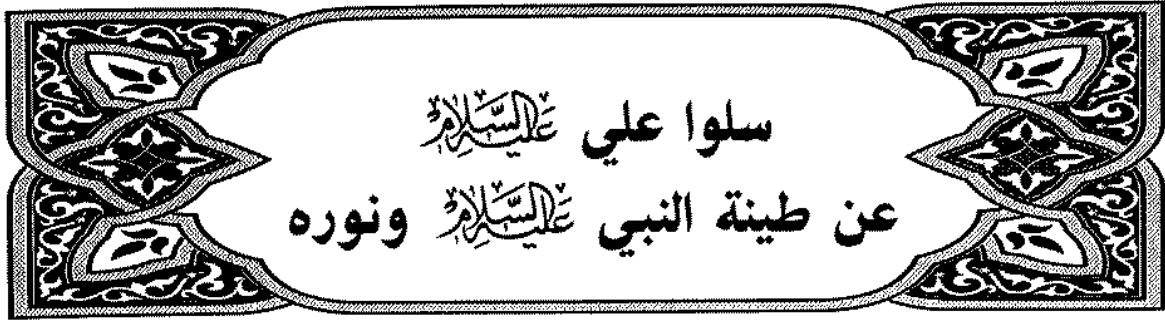 سلوا علي عَلَيْهِ السَّلَامُ
عن طينة النبي عَلَيْهِ السَّلَامُ ونوره